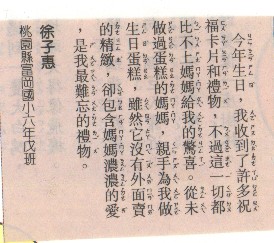 今年生日，我收到了許多祝
福卡片和禮物，不過這一切都
比不上媽媽給我的驚喜。從未
做過蛋糕的媽媽，親手為我做
生日蛋糕，雖然它沒有外面賣
的精緻，卻包含媽媽濃濃的愛
，是我最難忘的禮物。
徐子惠
桃園縣富岡國小六年戊班